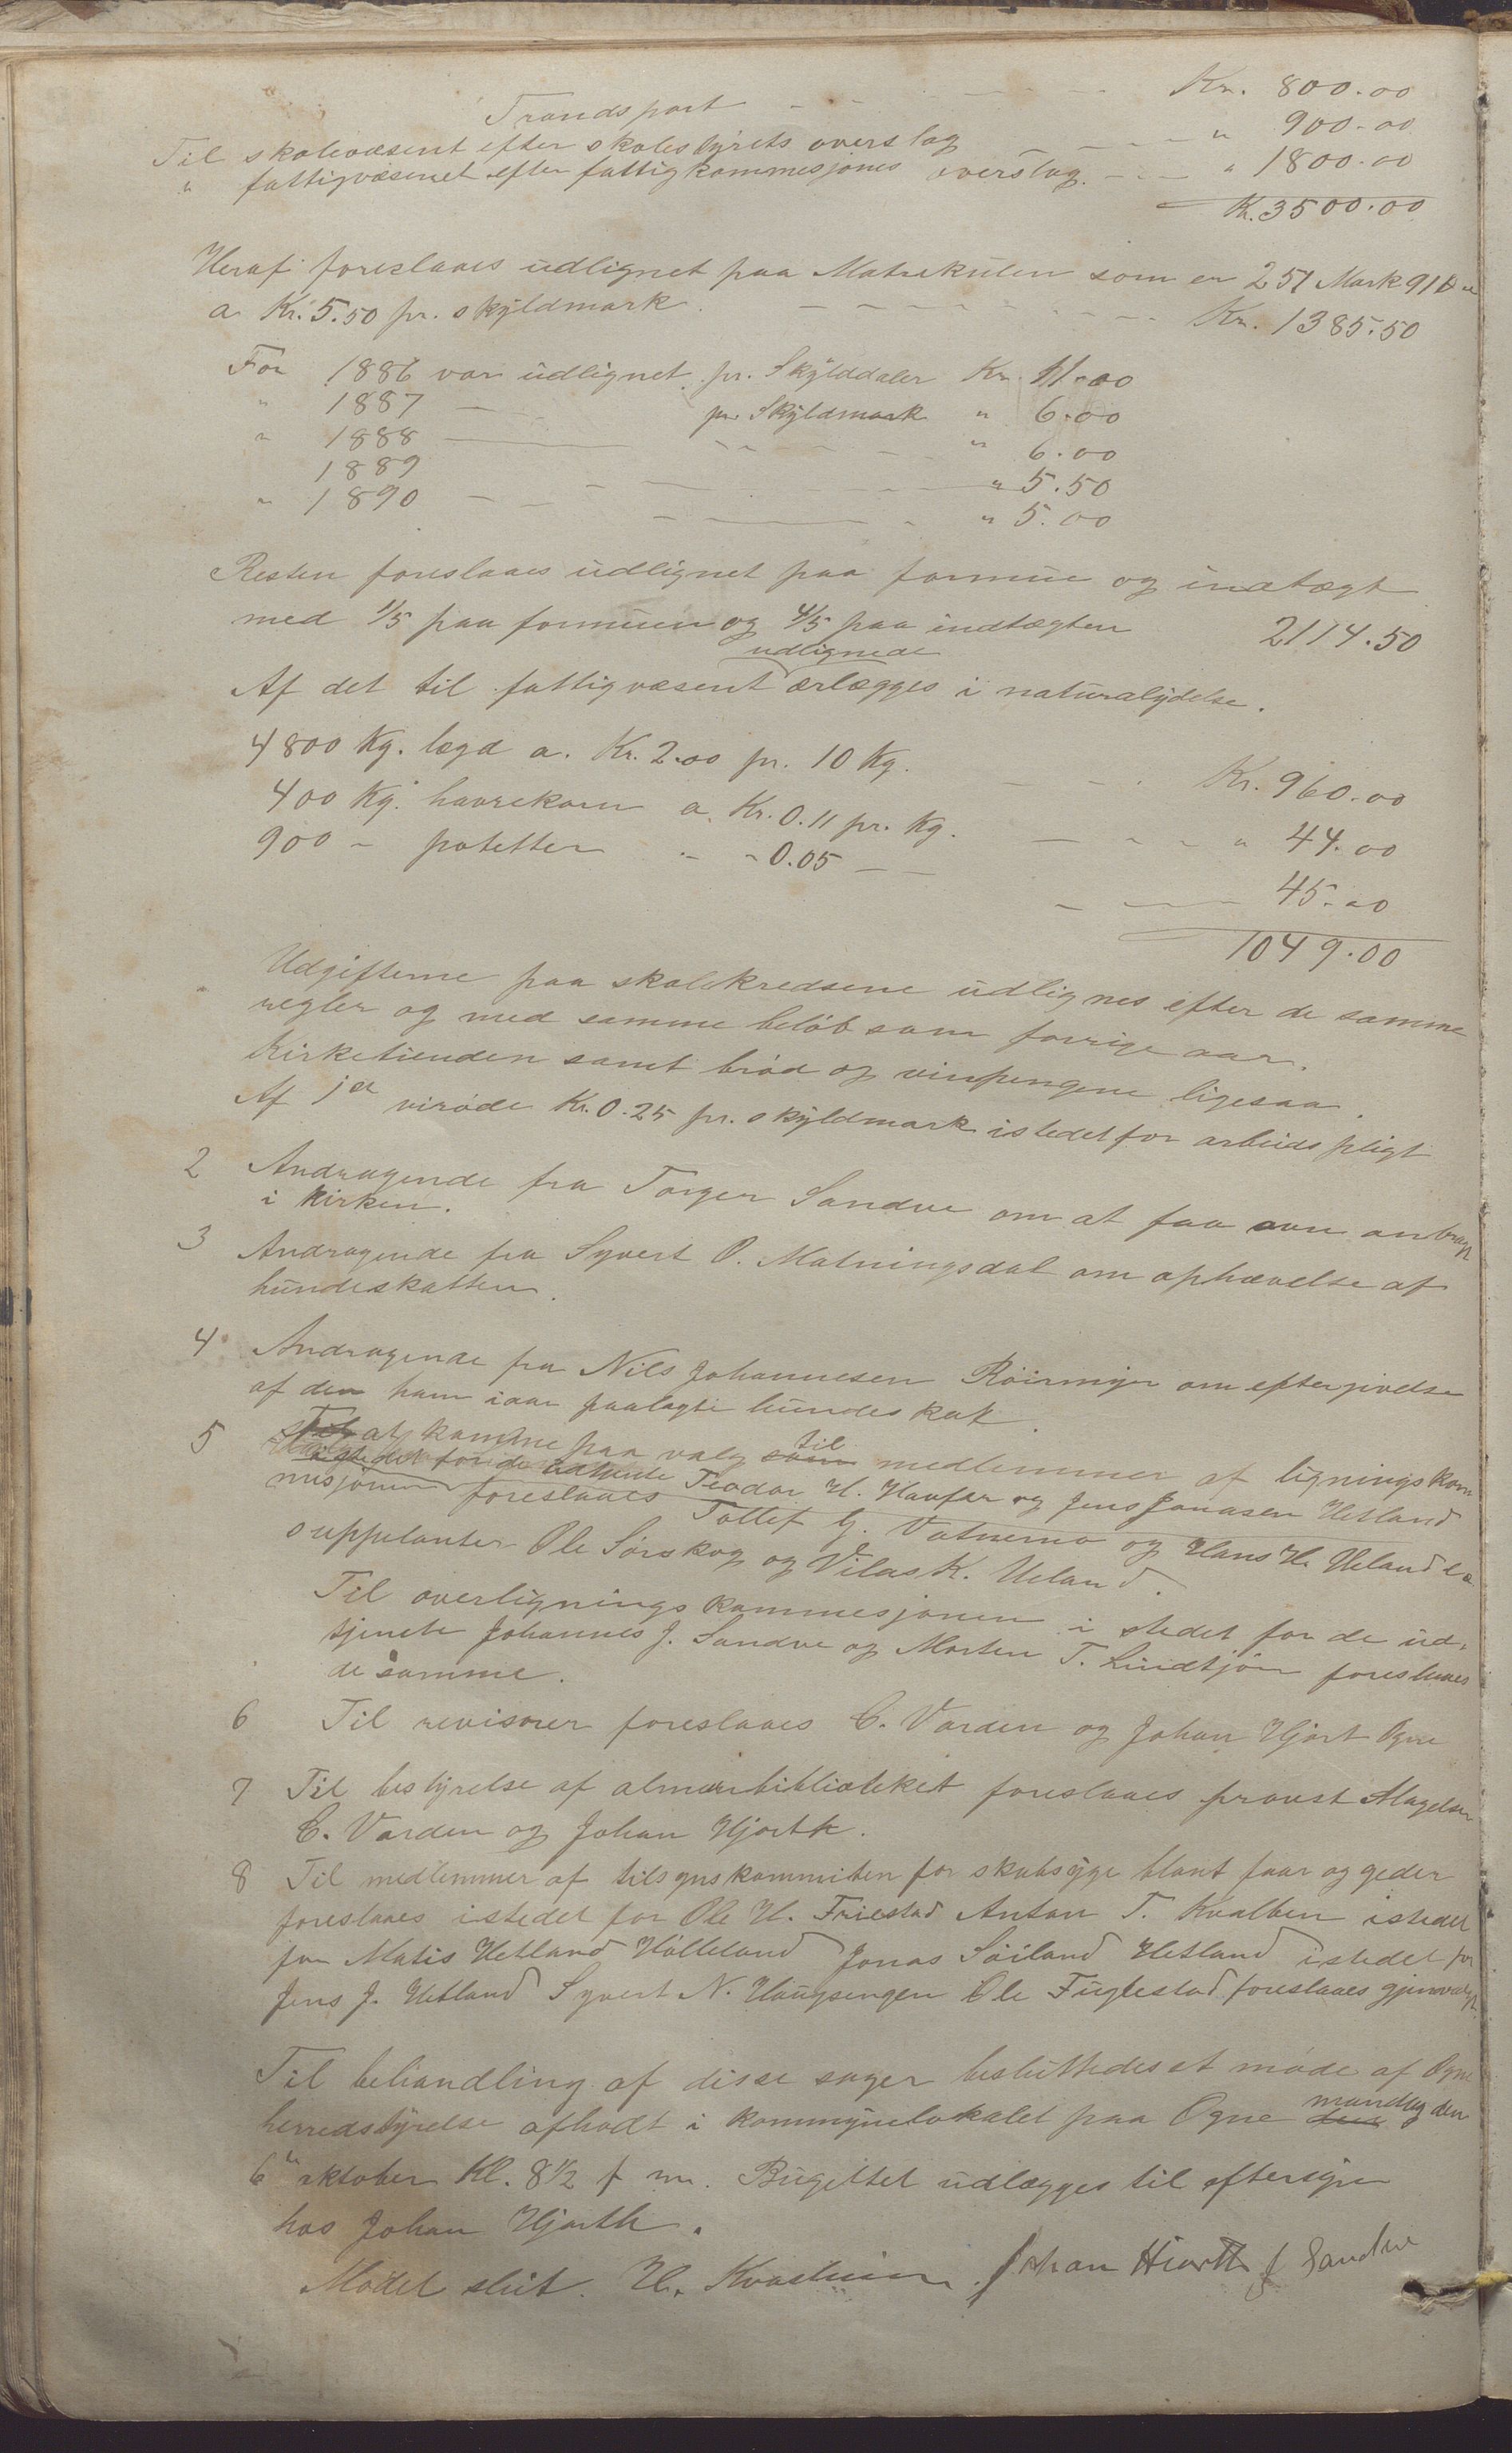 Trandsport - - - - Kr. 800.00
Til skolevæsent efter skolestyrets overslag - - - " 900.00
" fattigvæsenet efter fattigkommesjones overslag. - - - " 1800.00
K. 3500.00
Heraf foreslaaes udlignet paa Matrekulen som er 251 Mark 91
a Kr. 5.50 pr. skyldmark. - - - - - Kr. 1385.50
For 1886 var udlignet pr. Skylddaler Kr. 11.00
" 1887 — pr. Skyldmark " 6.00
" 1888 — - - - " 6.00
1889 - - - " 5.50
" 1890 - - - " 5.00
Resten foreslaaes udlignet paa formue og indtægt
med 1/5 paa formuen og 4/5 paa indtægten 2114.50
udlignede
Af det til fattigvæsent ærlægges i naturalydelse.
4800 Kg. lægd a. Kr. 2.00 pr. 10 Kg. - - - Kr. 960.00
400 Kg. havrekorn a. Kr. 0.11 pr. Kg. — - - " 44.00
900 - potetter - - 0.05 — - - — 45.00
1049.00
Udgifterne paa skolekredsene udlignes efter de samme
regler og med samme beløb som forrige aar.
Kirketienden samt brød og vinpengene ligesaa.
Af virøde Kr. 0.25 pr. skyldmark istedet for arbeidspligt
2 Andragende fra Torger Sandve om at faa ovn anbragt
i kirken.
3 Andragende fra Syvert O. Matningsdal om ophævelse af
hundeskatten.
4 Andragende fra Nils Johannesen Röirmyr om eftergivelse
af den ham iaar paalagte hundeskat
5 Til at komme paa valg som til medlemmer af ligningskom
istedet for de udtjente Teodor H. Haufar og Jens Jonasen Hetland
misjonen foreslaaes Tollef G. Vatnemo og Hans H. Ueland
suppelanter Ole Sørskog og Vilas K. Ueland.
Til overligningskommesjonen i stedet for de ud-
tjente Johannes J. Sandve og Morten T. Lindtjörn foreslaaes
de samme.
6 Til revisorer foreslaaes C. Varden og Johan Hjort Ogne
7 Til bestyrelse af almuebiblioteket foreslaaes provst Magelsen
C. Varden og Johan Hjorth.
8 Til medlemmer af tilsynskommiten for skabsyge blant faar og geder
foreslaaes istedet for Ole H. Friestad Anton T. Kvalben istedet
for Matis Hetland Hölleland Jonas Söiland Hetland istedet for
Jens J. Hetland Syvert N. Haugsengen Ole Fuglestad foreslaaes gjenvalgt.
Til behandling af disse sager besluttedes et møde af Ogne
herredstyrelse afhodt i kommynelokalet paa Ogne den mandag den
6te oktober Kl. 8 1/2 f m. Bugettet udlægges til eftersyn
hos Johan Hjorth.
Mödet slut. H. Kvasheim Johan Hiorth J Sandve